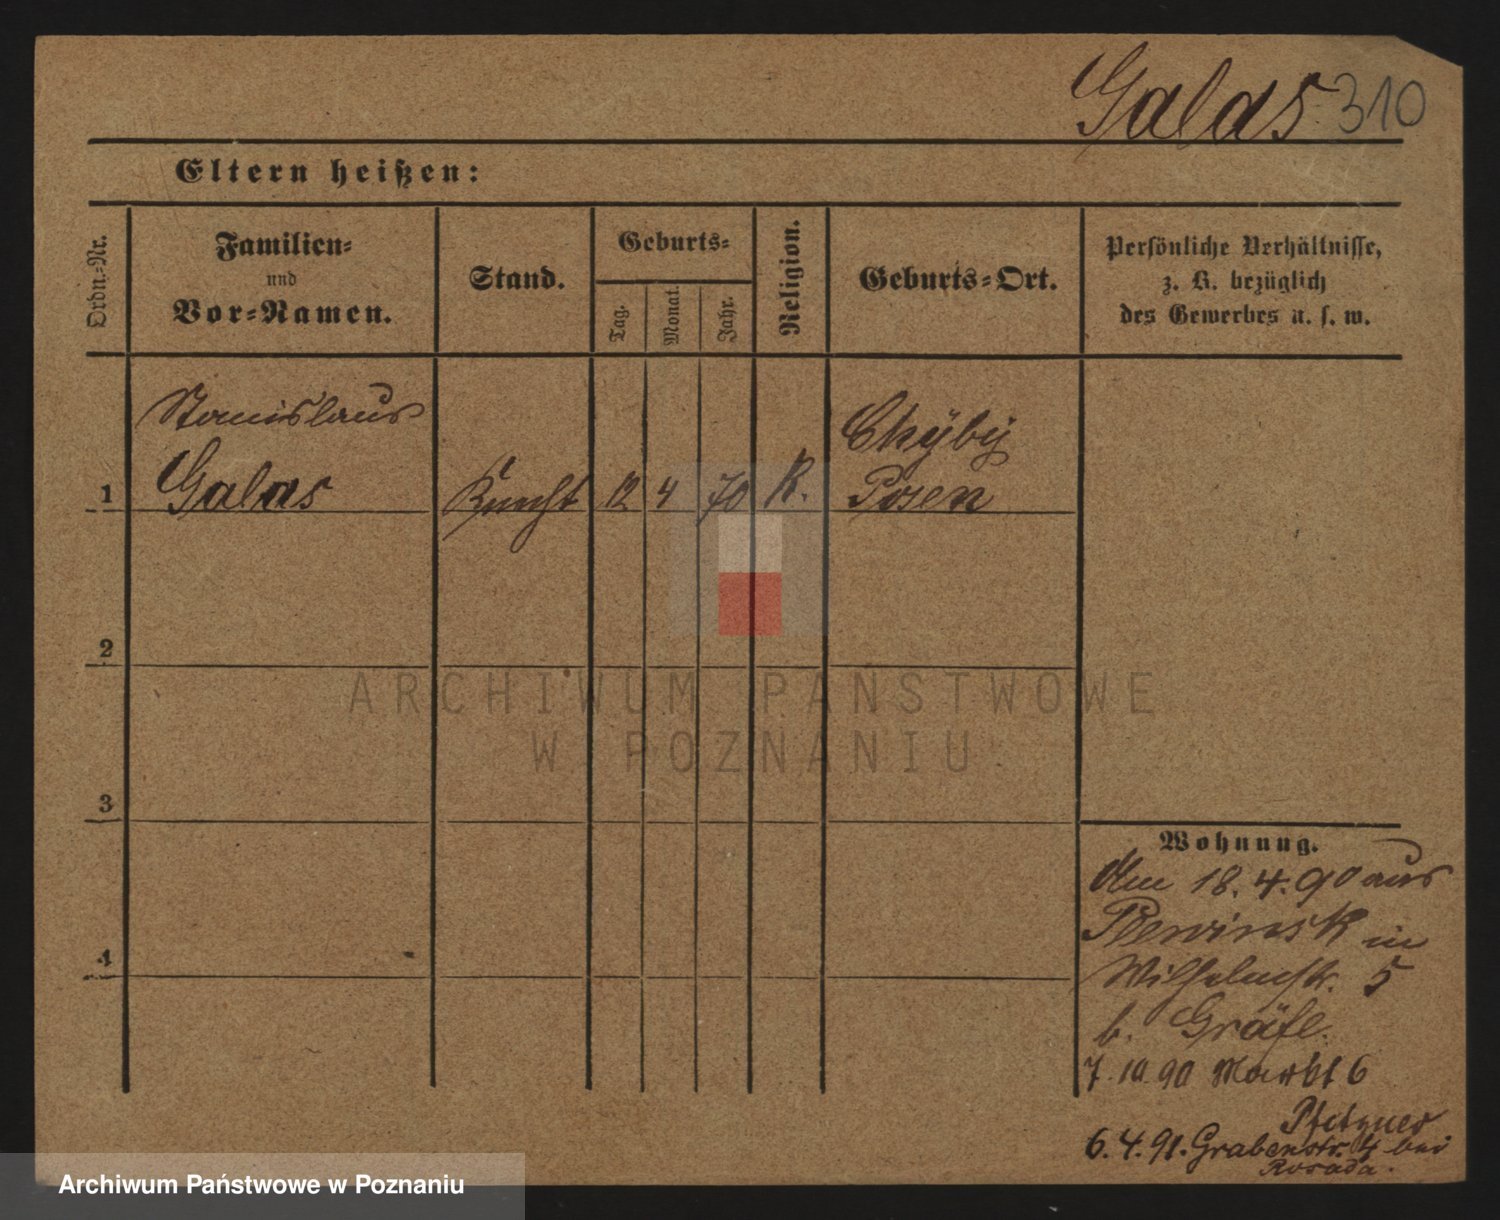 Galas 310
Eltern heißen:
Ordn.-Nr.
Familien-
und
Vor-Namen.
Stand.
Geburts-
Tag.
Monat.
Jahr.
Religion.
Geburts-Ort.
Persönliche Verhältnisse,
z. B. bezüglich
des Gewerbes u. s. w.
Stanislaus
Chÿbÿ
1 Galas Knecht 12 4 70 K. Posen
2
ARCHIWUM PAŃSTWOWE
W POZNANIU
3
Wohnung.
Am 18.4.90 aus
Plewinsk in
Wilhelmstr. 5
b. Gräfe.
4
7.10.90 Markt 6
Pfetzner
6.4.91. Grabenstr. 4 bei
Rosada.
Archiwum Państwowe w Poznaniu